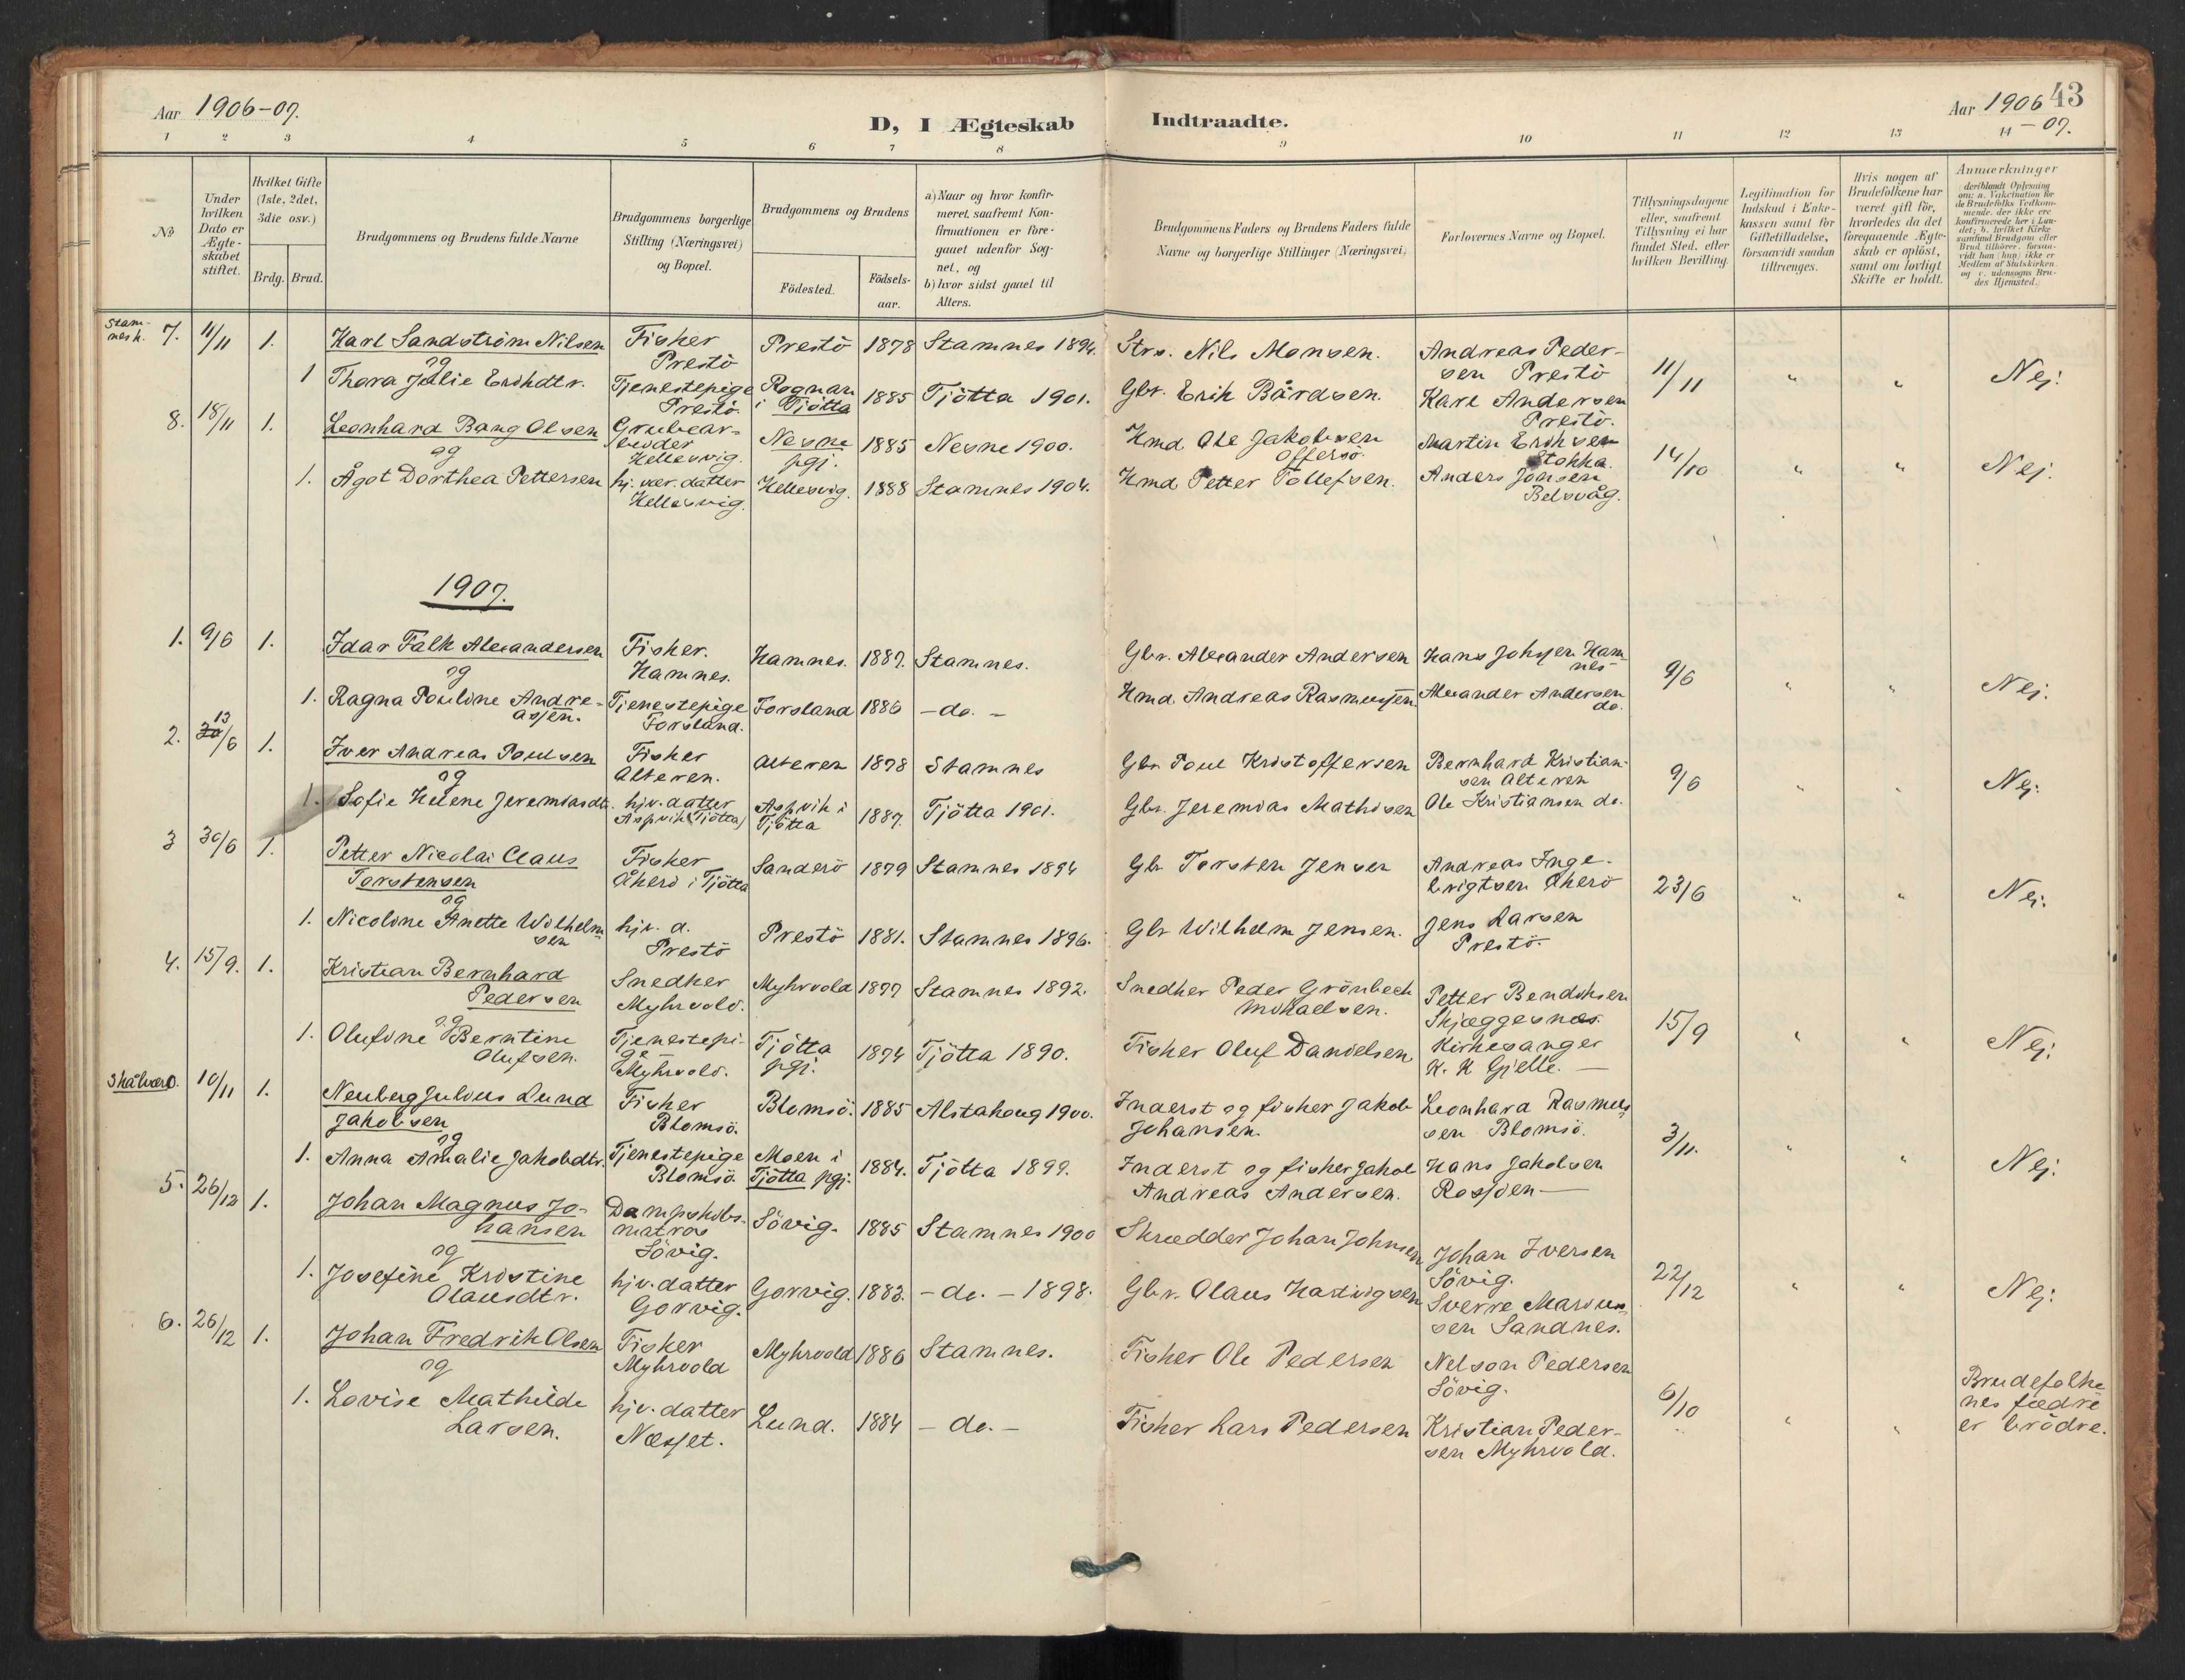 Aar 1906-07.
D, I Ægteskab Indtraadte.
Aar 1906 43
-07.
1 2 3 4 5 6 7 8 9 10 11 12 13 14
No
Under hvilken Dato er Ægteskabet stiftet.
Hvilket Gifte (1ste, 2det, 3die osv.)
Brdg. Brud.
Brudgommens og Brudens fulde Navne
Brudgommens borgerlige Stilling (Næringsvei) og Bopæl.
Brudgommens og Brudens
Födested.
Födselsaar.
a) Naar og hvor konfirmeret, saafremt Konfirmationen er foregaaet udenfor Sognet, og
b) hvor sidst gaaet til Alters.
Brudgommens Faders og Brudens Faders fulde Navne og borgerlige Stillinger (Næringsvei)
Forlovernes Navne og Bopæl.
Tillysningsdagene eller, saafremt Tillysning ei har fundet Sted, efter hvilken Bevilling.
Legitimation for Indskud i Enkekassen samt for Giftetilladelse, forsaavidt saadan tiltrænges.
Hvis nogen af Brudefolkene har været gift för, hvorledes da det foregaaende Ægteskab er oplöst, samt om lovligt Skifte er holdt.
Anmærkninger
deriblandt Oplysning om: a. Vakcination for de Brudefolks Vedkommende, der ikke ere konfirmerede her i Landet; b. hvilket Kirkesamfund Brudgom eller Brud tilhörer, forsaavidt han (hun) ikke er Medlem af Statskirken. og c. udensogns Brudes Hjemsted.
Stamnes k. 7. 11/11 1. Karl Sandström Nilsen Fisker Prestö Prestö 1878 Stamnes 1894. Strs. Nils Monsen. Andreas Pedersen Prestö 11/11 " " Nej.
og
1 Thora Julie Erikdtr. Tjenestepige Prestö. Rognan i Tjötta 1885 Tjötta 1901. Gbr. Erik Bårdsen. Karl Andersen Prestö.
8. 18/11 1. Leonhard Bang Olsen Grubearbeider Hellesvig. Nesne pgj. 1885 Nesne 1900. Hmd Ole Jakobsen Offersö. Martin Eriksen Stokka. 14/10 " " Nej.
og
1. Ågot Dorthea Pettersen hj. vær. datter Hellesvig. Hellesvig. 1888 Stamnes 1904. Hmd Petter Tollefsen. Anders Jonsen Belsvåg.
1907.
1. 9/6 1. Idar Falk Alexandersen Fisker. Hamnes. Hamnes. 1887. Stamnes. Gbr. Alexander Andersen Hans Johsen Hamnes 9/6 " " Nej.
og
1. Ragna Pouline Andreassen. Tjenestepige Forsland. Forsland 1886 - do. - Hmd Andreas Rasmussen. Alexander Andersen do.
2. 13/6 1. Iver Andreas Poulsen Fisker Alteren. Alteren 1878 Stamnes Gbr Poul Kristoffersen Bernhard Kristiansen Alteren 9/6 " " Nej.
og
1. Sofie Helene Jeremiasdt. hjv. datter Aspvik (Tjötta) Aspvik i Tjötta 1887. Tjötta 1901. Gbr. Jeremias Mathisen Ole Kristiansen do.
3 30/6 1. Petter Nicolai Claus Torstensen Fisker Åkerö i Tjötta Sanderö 1879 Stamnes 1894 Gbr Torsten Jensen Andreas Ingebrigtsen Åkerö 23/6 " " Nej.
og
1. Nicoline Anette Wilhelmsen hjv. d. Prestö Prestö 1881. Stamnes 1896. Gbr Wilhelm Jensen. Jens Larsen Prestö.
4. 15/9. 1. Kristian Bernhard Pedersen Snedker Myhrvold. Myhrvold 1877 Stamnes 1892. Snedker Peder Grönbech Mikaelsen. Petter Bendiksen Skjeggesnæs. 15/9 " " Nej.
og
1. Olufine Berntine Olufsen. Tjenestepige Myhrvold. Tjötta pgj. 1874 Tjötta 1890. Fisker Oluf Danielsen. Kirkesanger K. K Gjelle.
Skålvær. 10/11 1. Neuberg Julius Lund Jakobsen Fisker Blomsö. Blomsö. 1885 Alstahoug 1900. Inderst og fisker Jakob Johansen. Leonhard Rasmussen Blomsö. 3/11. " " Nej.
og
1. Anna Amalie Jakobdtr. Tjenestepige Blomsö. Moen i Tjötta pgj. 1884. Tjötta 1899. Inderst og fisker Jakob Andreas Andersen. Hans Jakobsen Rosöen
5. 26/12 1. Johan Magnus Johansen Dampskibsmatros Sövig. Sövig. 1885 Stamnes 1900 Skrædder Johan Johnsen Johan Iversen Sövig. 22/12 " " Nej.
og
1. Josefine Kristine Olausdtr. hjv. datter Gorvig. Gorvig. 1883. - do. - 1898. Gbr. Olaus Hartvigsen Sverre Mariussen Sandnes.
6. 26/12 1. Johan Fredrik Olsen Fisker Myhrvold Myhrvold 1886 Stamnes. Fisker Ole Pedersen Nelson Pedersen Sövig. 6/10 " " Brudefolkenes fædre er brödre.
og
1. Lovise Mathilde Larsen. hjv. datter Næsset. Lund. 1884 - do. - Fisker Lars Pedersen Kristian Pedersen Myhrvold.